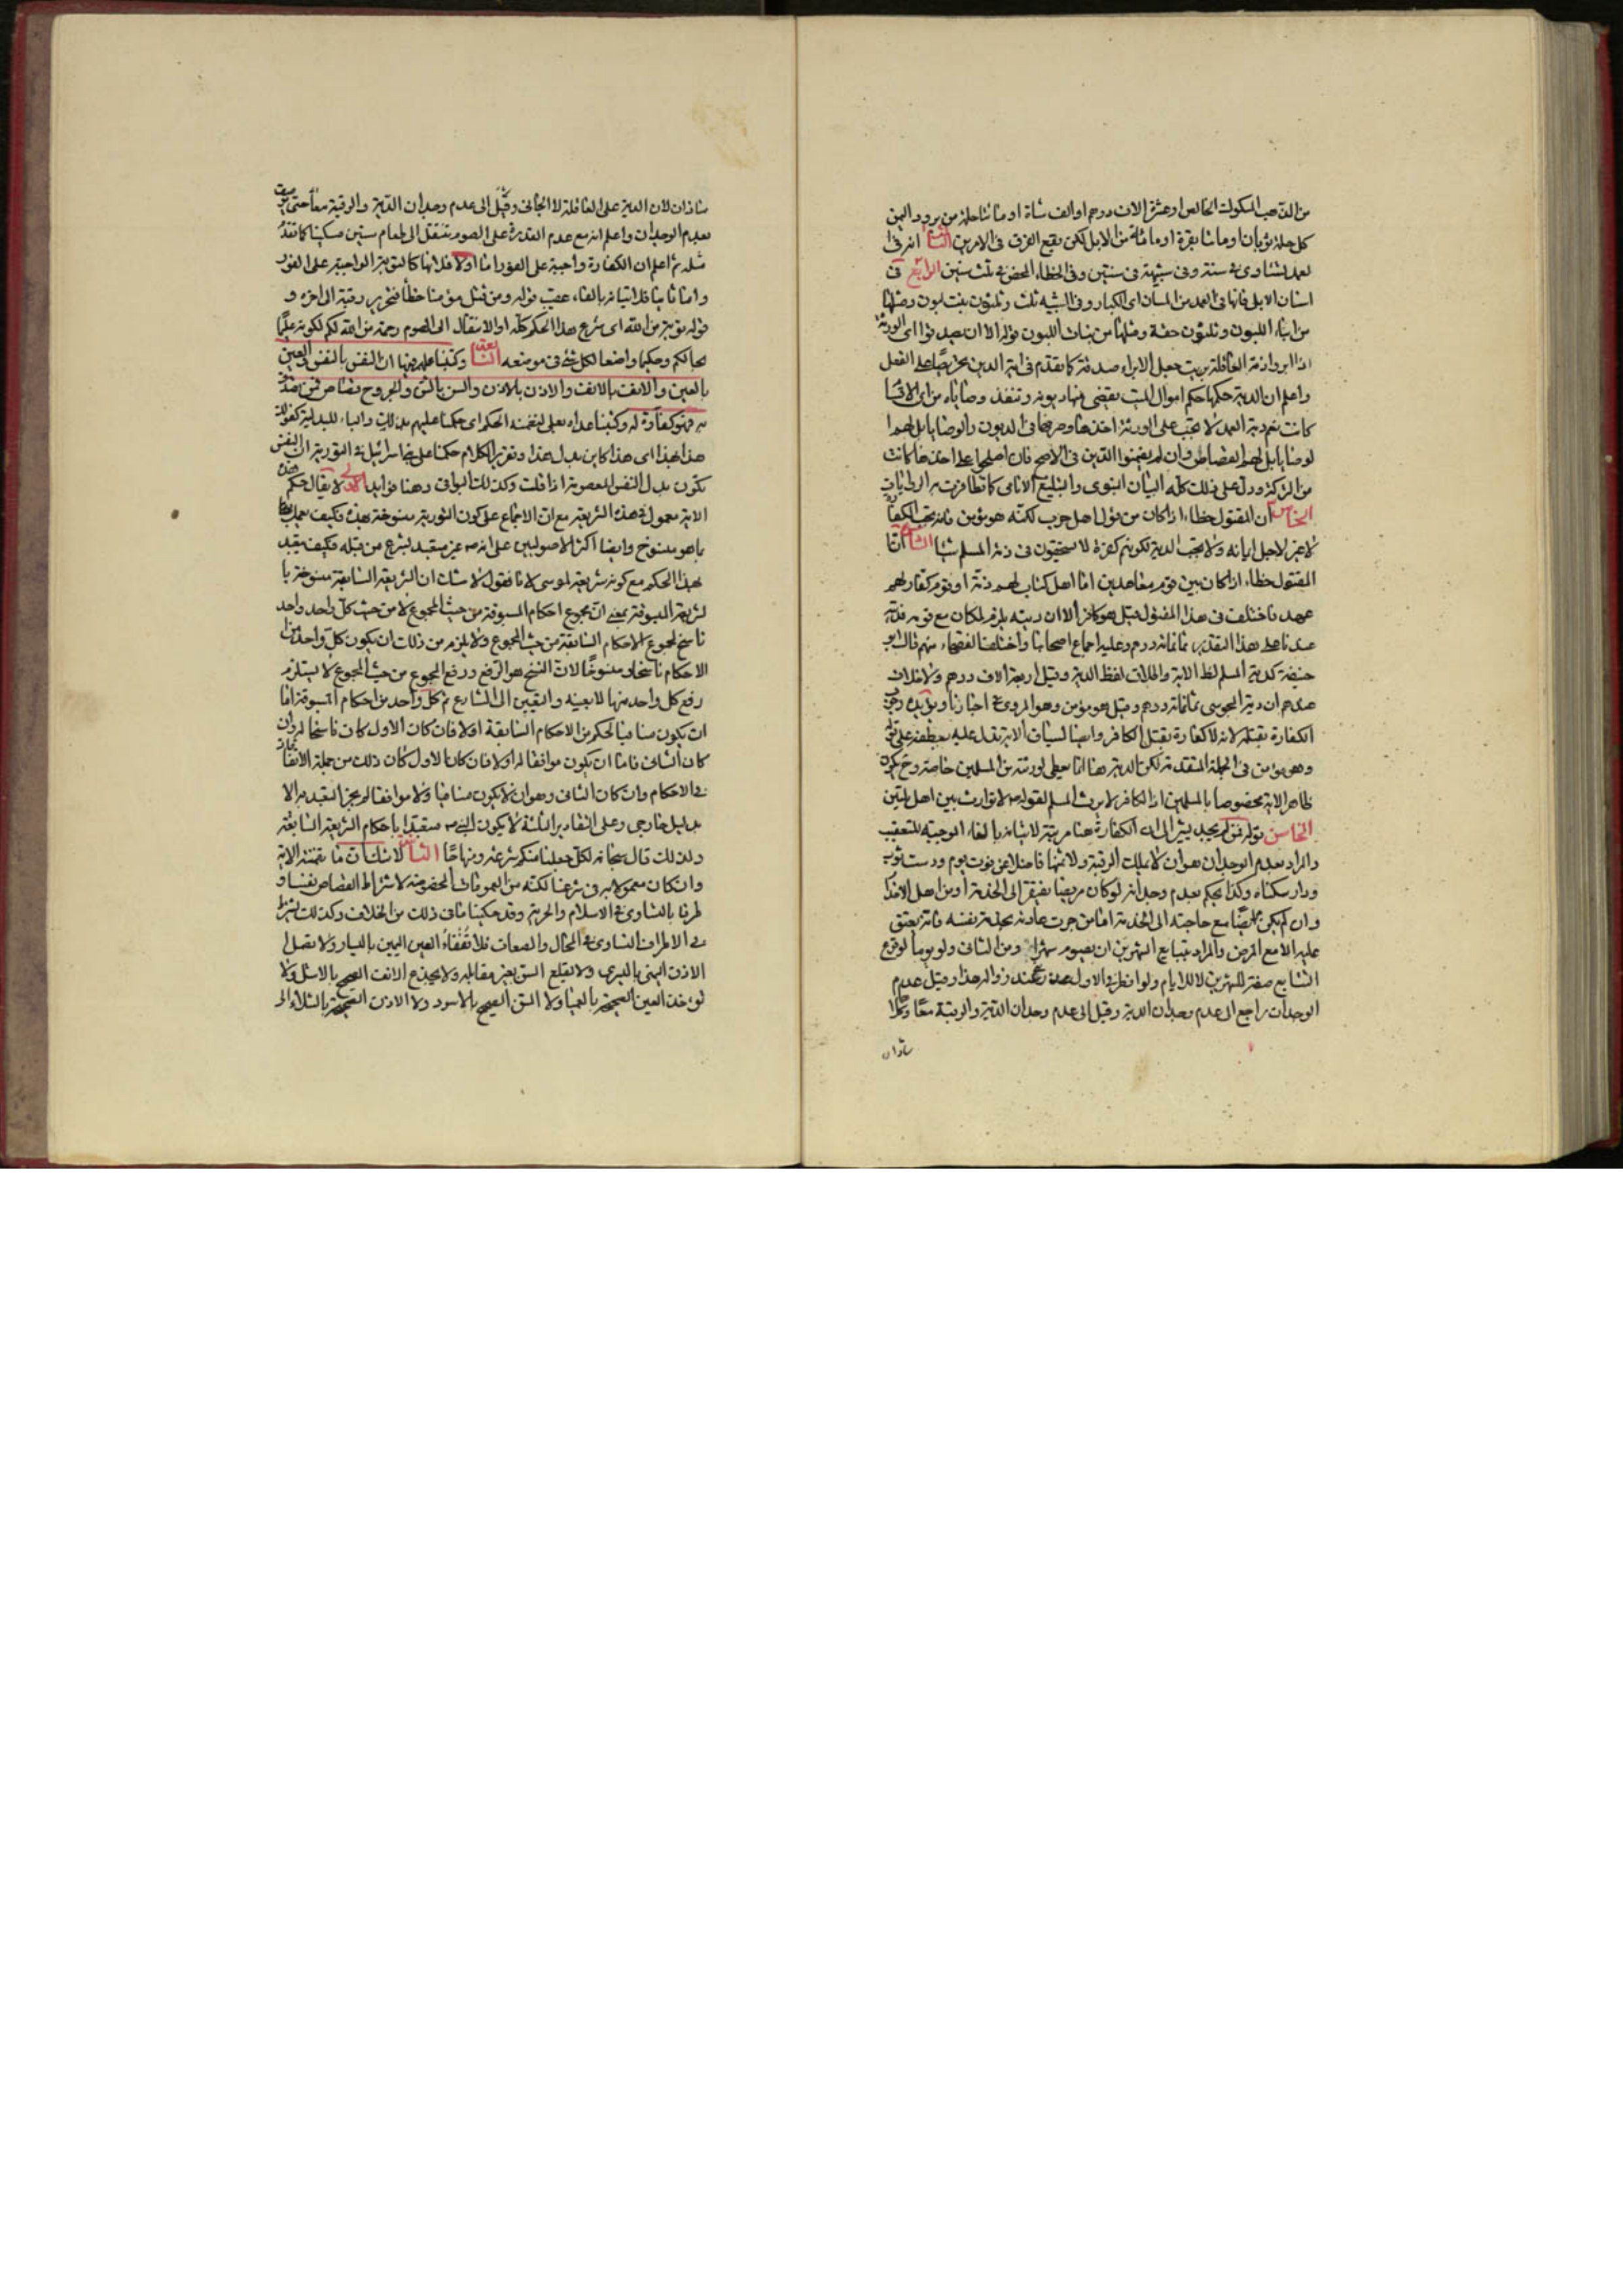 من الذهب المسكوك الخالص او عشرة الاف درهم او الف شاة او مائتا حلة من برود اليمن
كل حلة ثوبان او مائتا بقرة او مائة من الابل لكن يقع الفرق فى الامرين الثالث انه فى
العمد تستادى فى سنة وفى شبيهه فى سنتين وفى الخطاء المحض فى ثلث سنين الرابع فى
اسنان الابل فانها فى العمد من المسان اى الكبار وفى الشبيه ثلث وثلثون بنت لبون
من ابناء اللبون وثلثون حقة ومثلها من بنات اللبون قوله الا ان يصدقوا اى الورثة
اذا ابروا ذمة العاقلة بريت جعل الابراء صدقة كما تقدم فى اية الدين تحريضا على الفعل
واعلم ان الدية حكمها حكم اموال الميت يقضى منها ديونه وتنفذ وصاياه من اى الاقسام
كانت نعم دية العمد لا يجب على الورثة اخذها وصرفها فى الديون والوصايا بل لهم
القصاص وان لم يضمنوا الدين فى الاصح فان اصطلحوا على اخذها كانت
من التركة ودل على ذلك كله البيان النبوى والتبليغ الامامى كما تظافرت به الروايات
الخامس ان المقتول خطاء اذا كان من قوم اهل حرب لكنه هو مؤمن فانه يجب الكفارة
لا غير لاجل ايمانه ولا يجب الدية لكونهم كفرة لا يستحقون فى ذمة المسلم شيئا السادس
المقتول خطاء اذا كان بين قوم معاهدين اما اهل كتاب لهم ذمة او قوم كفار لهم
عهد فاختلف فى هذا المقتول فقيل هو كافر الا ان ديته يلزم لمكان مع قومه فديته
عندنا على هذا التقدير ثمانمائة درهم وعليه اجماع اصحابنا واختلف الفقهاء منهم قال ابو
حنيفة كدية المسلم لظ الاية واطلاق لفظ الدية وقيل اربعة الاف درهم ولا خلاف
عندهم ان دية المجوسى ثمانمائة درهم وقيل هو مؤمن وهو المروى فى اخبارنا ويؤيده وجوب
الكفارة بقتله لانه لا كفارة بقتل الكافر وايضا لسياق الاية يدل عليه بعطفه على قوله
وهو مؤمن فى الجملة المتقدمة لكن الدية هنا انما يعطى لورثته من المسلمين خاصة وح يكون
ظاهر الاية مخصوصا بالمسلمين اذ الكافر لا يرث المسلم لقوله ص لا توارث بين اهل ملتين
الخامس قوله فمن لم يجد يشير الى ان الكفارة هنا مرتبة لاتيانه بالفاء الموجبة للتعقيب
والمراد بعدم الوجدان هو ان لا يملك الرقبة ولا ثمنها فاضلا عن قوت يوم ودست ثوب
ودار سكناه وكذا يحكم بعدم وجدانه لو كان مريضا يفتقر الى الخدمة او من اهل
وان لم يكن مريضا مع حاجته الى الخدمة اما من جرت عادته بخدمة نفسه فانه يعتق
عليه الا مع المرض والمراد بتتابع الشهرين ان يصوم شهرا ومن الثانى ولو يوما لوقوع
التتابع صفة للشهرين لا للايام ولو افطر فى الاول لعذر بنى عند زواله هذا وقيل عدم
الوجدان راجع الى عدم وجدان الدية وقيل الى عدم وجدان الدية والرقبة معا وكلاهما
شاذان
شاذان لان الدية على العاقلة لا الجانى وقيل الى عدم وجدان الدية والرقبة معا حتى
بعدم الوجدان واعلم انه مع عدم القدرة على الصوم ينتقل الى اطعام ستين مسكينا كما تقدم
مثله ثم اعلم ان الكفارة واجبة على الفور اما اولا فلانها كالتوبة الواجبة على الفور
واما ثانيا فلاتيانه بالفاء عقيب قوله ومن قتل مؤمنا خطأ فتحرير رقبة الى اخره و
قوله توبة من الله اى شرع هذا الحكم كله او الانتقال الى الصوم رحمة من الله لكم لكونه عليما
بحالكم وحكيما واضعا لكل شئ فى موضعه الثالثة وكتبنا عليهم فيها ان النفس بالنفس والعين
بالعين والانف بالانف والاذن بالاذن والسن بالسن والجروح قصاص فمن تصدق
به فهو كفارة له وكتبنا عداه بعلى لتضمنه الحكم اى حكمنا عليهم بذلك والباء للبدلية كقولك
هذا بهذا اى هذا كاين بدل هذا وتقدير الكلام حكمنا على بنى اسرائيل فى التورية ان النفس
تكون بدل النفس المعصومة اذا قتلت وكذلك البواقى وهنا فوايد الاولى لا يقال حكم هذه
الاية معمول فى هذه الشريعة مع ان الاجماع على كون التورية منسوخة بهذه فكيف يعمل
بما هو منسوخ وايضا اكثر الاصوليين على انه ص غير متعبد بشرع من قبله فكيف يتعبد
بهذا الحكم مع كونه شريعة لموسى لانا نقول لا شك ان الشريعة السابقة منسوخة با
لشريعة المسبوقة بمعنى ان مجموع احكام المسبوقة من حيث المجموع لا من حيث كل واحد واحد
ناسخ لمجموع الاحكام السابقة من حيث المجموع ولا يلزم من ذلك ان يكون كل واحد من
الاحكام ناسخا ومنسوخا لان النسخ هو الرفع ورفع المجموع من حيث المجموع لا يستلزم
رفع كل واحد منها لا بعينه والتعيين الى الشارع ثم كل واحد من احكام المسبوقة اما
ان يكون منافيا لحكم من الاحكام السابقة اولا فان كان الاول كان ناسخا له وان
كان الثانى فاما ان يكون موافقا له اولا فان كان الاول كان ذلك من جملة الاتفاق
فى الاحكام وان كان الثانى وهو ان لا يكون منافيا ولا موافقا لم يجز التعبد به الا
بدليل خارجى وعلى التقادير الثلثة لا يكون النبى ص متعبدا باحكام الشريعة السابقة
ولذلك قال سبحانه لكل جعلنا منكم شرعة ومنهاجا الثانية لا شك ان ما تضمنته الاية
وان كان معمولا به فى شرعنا لكنه من العمومات المخصوصة لاشتراط القصاص نفسا و
طرفا بالتساوى فى الاسلام والحرية وقد حكينا ما فى ذلك من الخلاف وكذلك يشترط
فى الاطراف التساوى فى المحال والصفات فلا تُفقأ العين اليمين باليسار ولا تصلم
الاذن اليمنى باليسرى ولا يقلع السن بغير مقابله ولا يجذع الانف الصحيح بالاشل ولا
تؤخذ العين الصحيحة بالعمياء ولا السن الصحيح بالاسود ولا الاذن الصحيحة بالشلاء الى